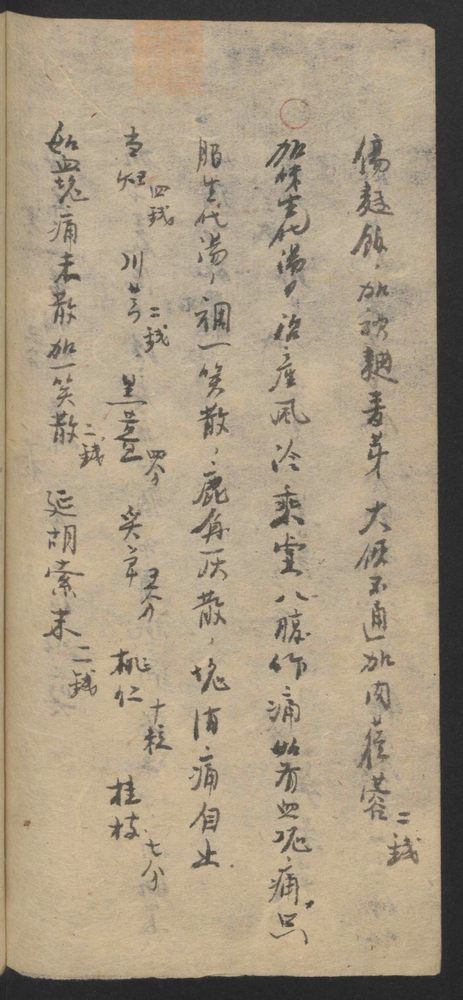 傷麪飯，加神麯麥芽 大便不通加肉蓯蓉二錢
加味生化湯，治產風冷乘虛入腹作痛如有血塊痛只
服生化湯，調一笑散，鹿角灰散，塊消痛自止
當歸四錢 川芎二錢 黑姜四分 炙草五分 桃仁十粒 桂枝七分
如血塊痛未散加一笑散二錢 延胡索末二錢